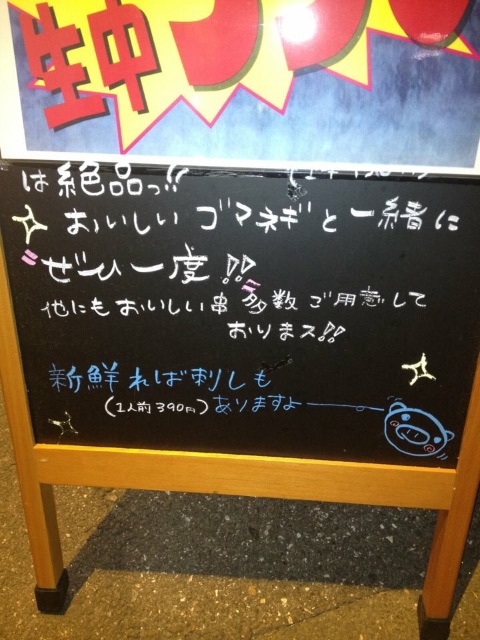 生中
は絶品っ!!
おいしいゴマネギと一緒に
ぜひ一度!!
他にもおいしい串多数ご用意して
おりまス!!
新鮮れば 刺しも
(1人前390円)ありますよ